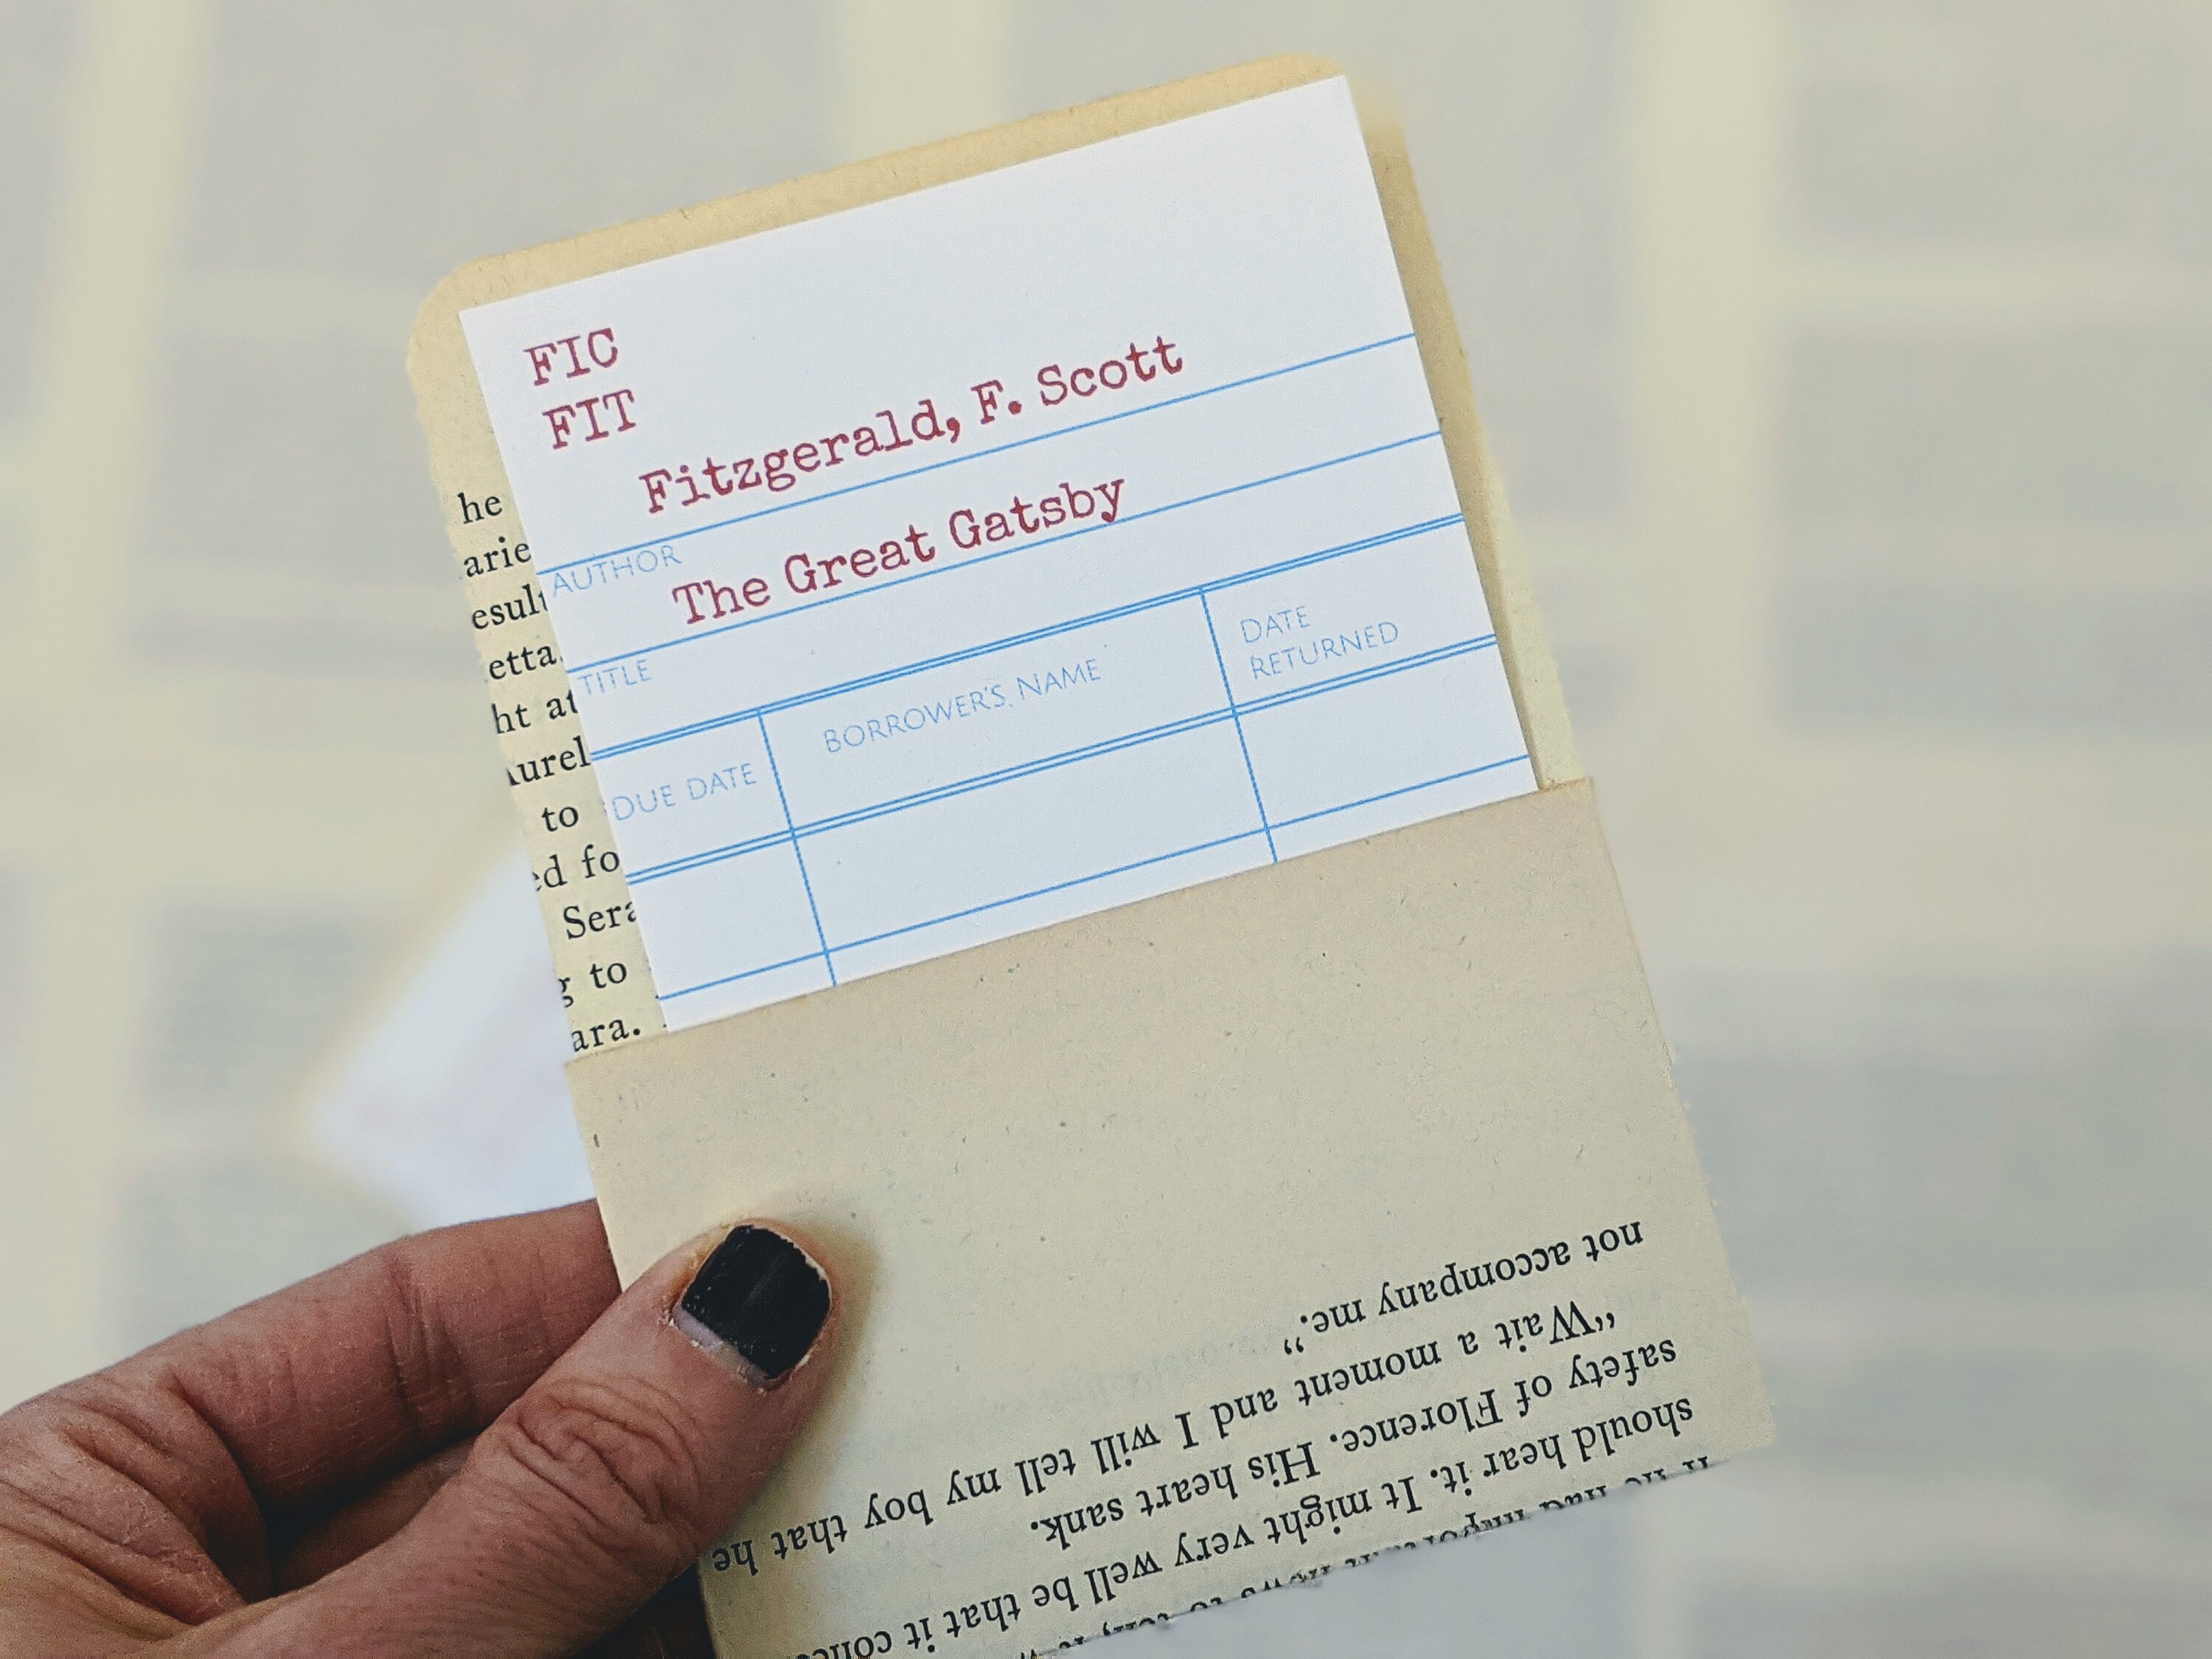 FIC
FIT
Fitzgerald, F. Scott
AUTHOR
The Great Gatsby
TITLE
DUE DATE
BORROWER'S NAME
DATE
RETURNED
he
arie
esult
etta
ht at
urel
to
ed fo
Sera
g to
ara.
should hear it. It might very well be that it conc
safety of Florence. His heart sank.
“Wait a moment and I will tell my boy that he
not accompany me.”